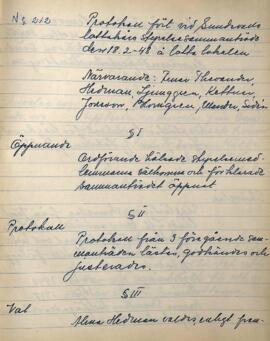 Nr 212
Protokoll fört vid Sundsvalls
lottakårs styrelsesammanträde
den 18.2-48 å lotta lokalen
Närvarande: Thevander,
Hedman, Ljunggren, Kettner,
Jonsson, Blomgren,
§ I
Öppnande
Ordförande hälsade styrelsemed-
lemmarna välkomna och förklarade
sammanträdet öppnat
§ II
Protokoll
Protokoll från 3 föregående sam-
manträden lästes, godkändes och
justerades.
§ III
Val
Hedman valdes, enligt